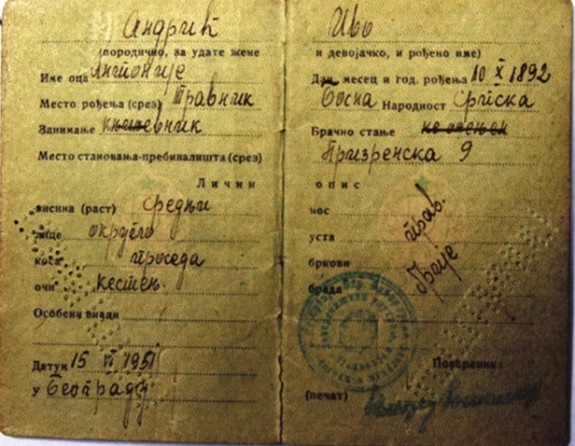 Андрић Иво
(породично, за удате жене и девојачко, и рођено име)
Име оца Антоније Дан, месец и год. рођења 10 X 1892
Место рођења (срез) Травник Босна Народност Српска
Занимање књижевник Брачно стање не ожењен
Место становања-пребивалишта (срез) Призренска 9
Лични опис
висина (раст) средњи нос прав.
лице округло уста
коса проседа бркови брије
очи кестењ. брада
Особени знаци
Датум 15 VI 1951 Повереник:
У Београду (печат)